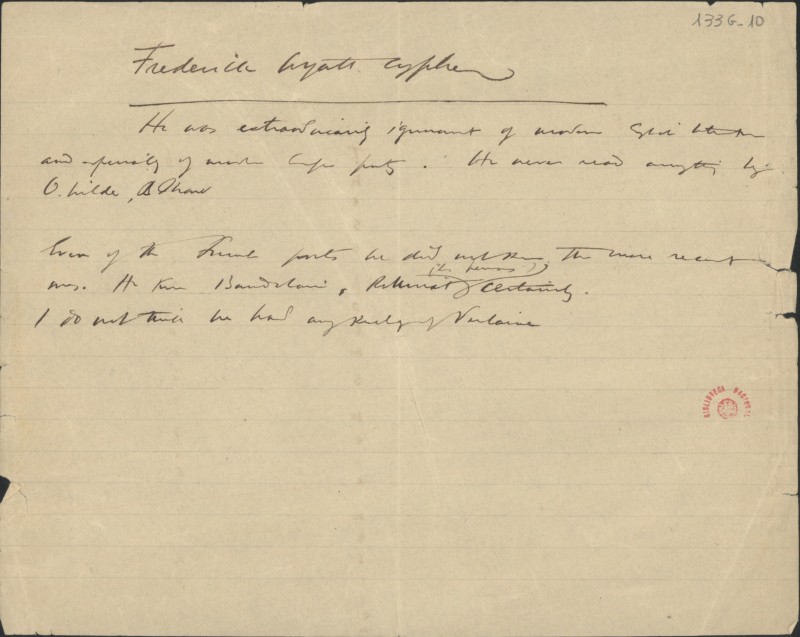 133G-10
Frederick Wyatt Cypher
He was extraordinarily ignorant of modern English literature
and especially of modern English poetry. He never read anything by
O. Wilde, B. Shaw
Even of the French poets he did not know the more recent
ones. He knew Baudelaire, Rollinat certainly.
I do not think he had any knowledge of Verlaine
BIBLIOTECA NACIONAL